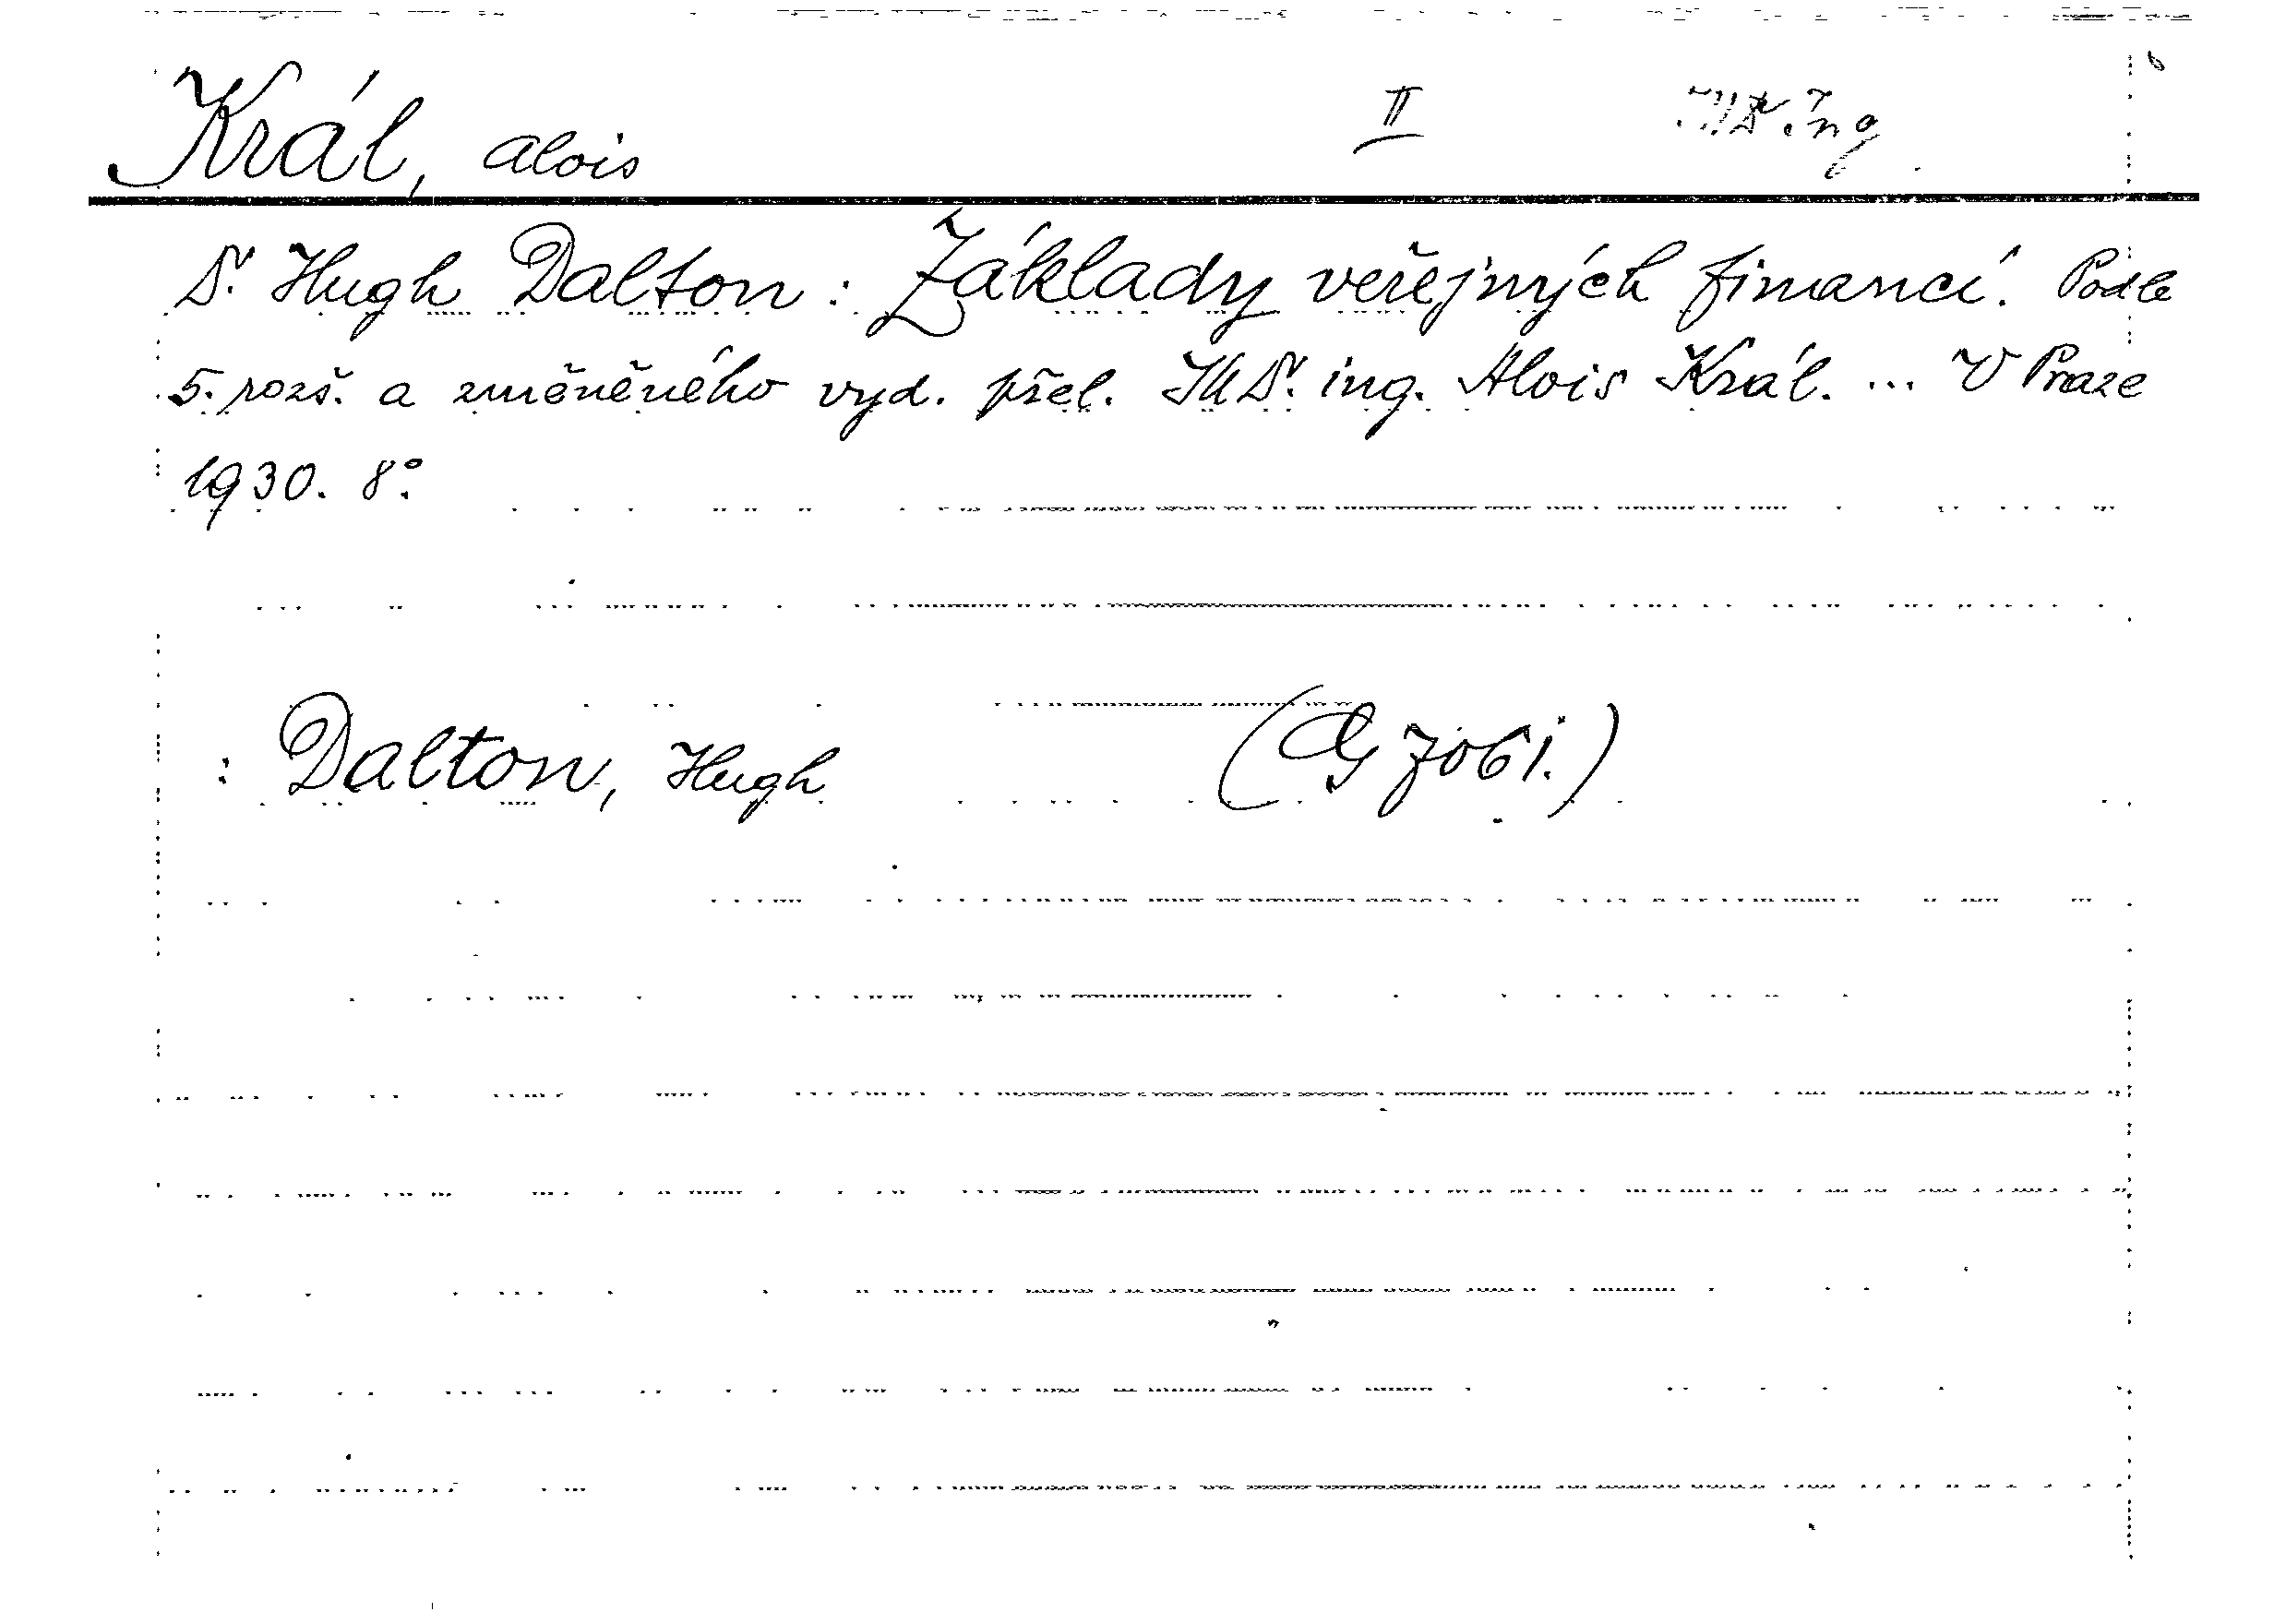 Král, Alois II JUDr. Ing.
Dr. Hugh Dalton: Základy veřejných financí. Podle
5. rozš. a změněného vyd. přel. JUDr. ing. Alois Král. ... V Praze
1930. 8°.
: Dalton, Hugh (G 7061.)